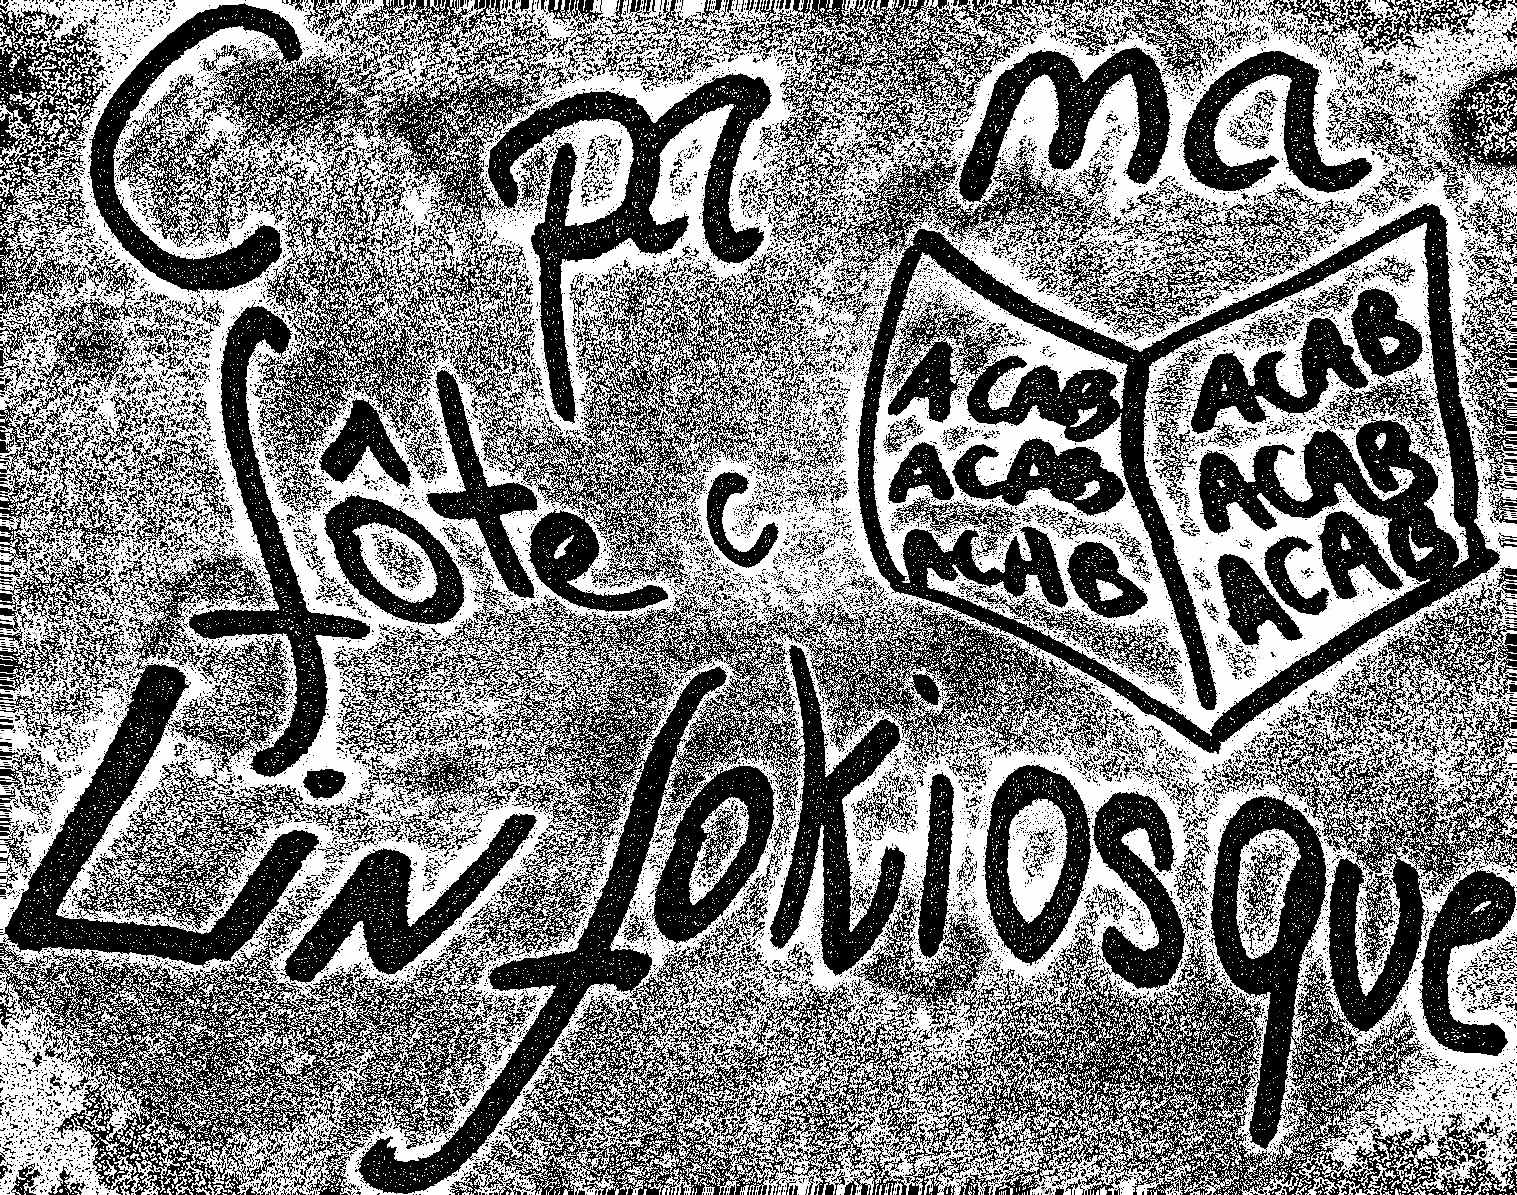 C pa ma
fôte c
ACAB ACAB
ACAB ACAB
ACAB ACAB
Linfokiosque